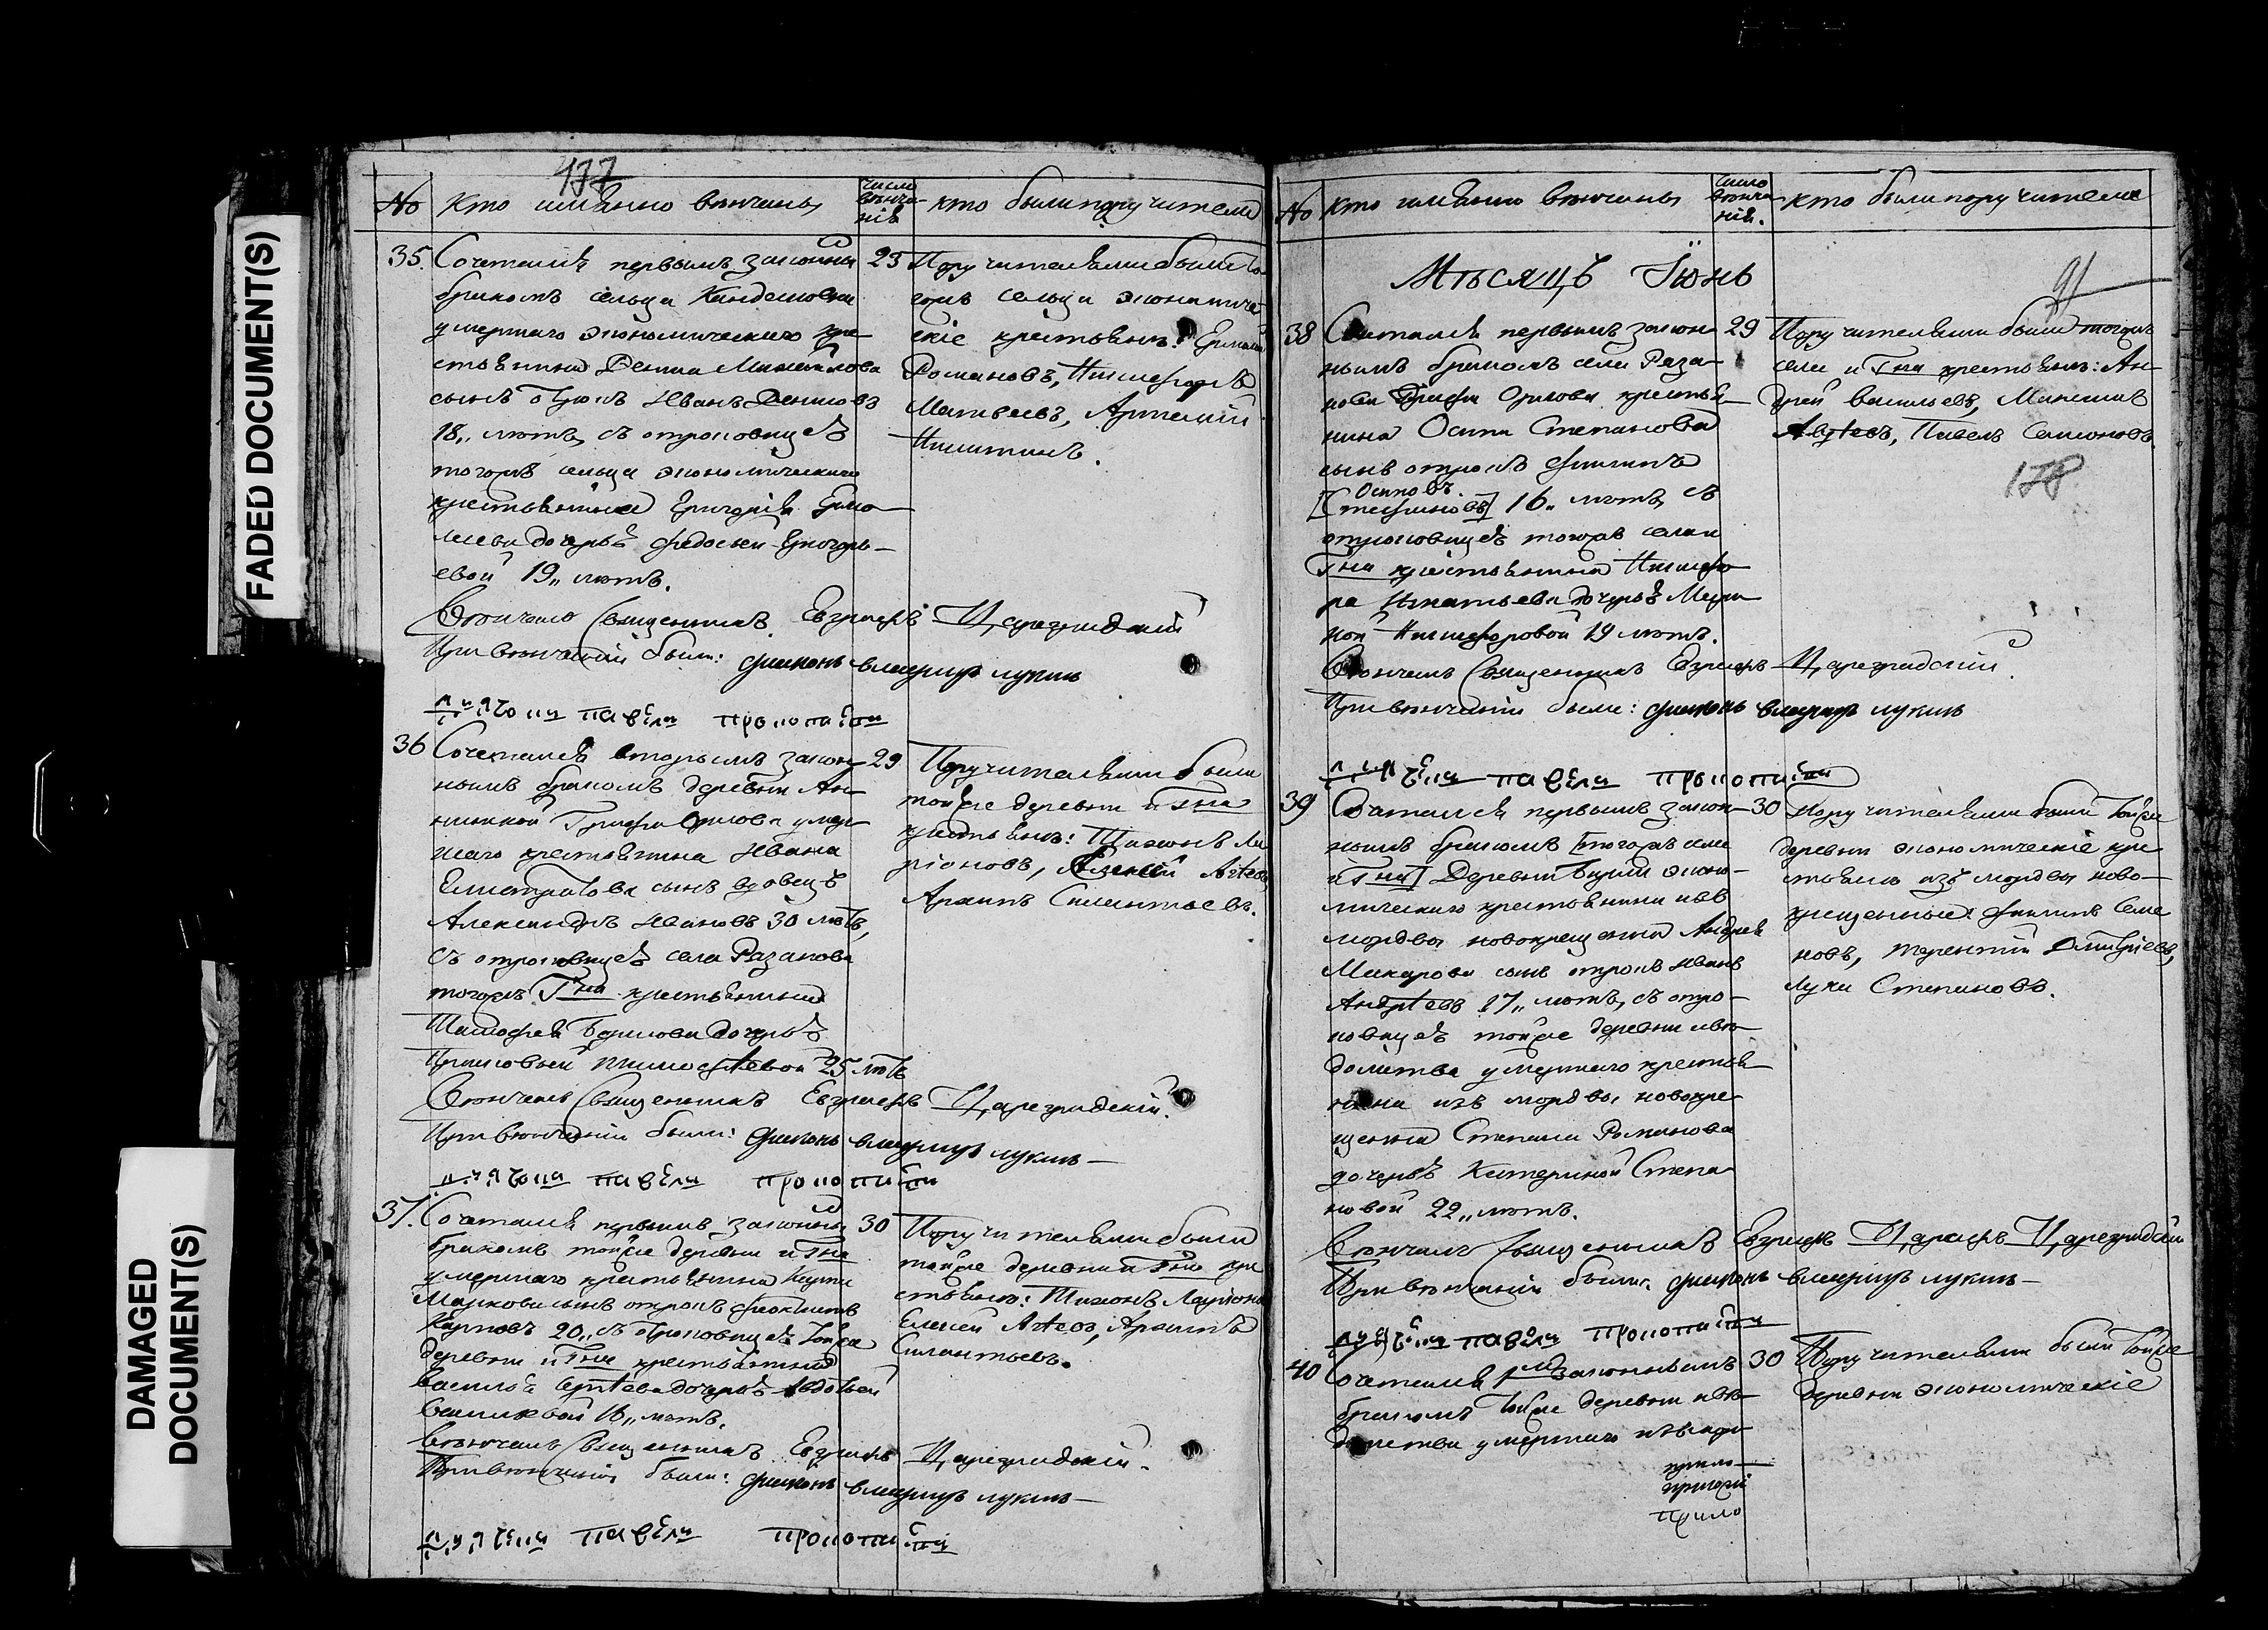 FADED DOCUMENT(S)
DAMAGED
DOCUMENT(S)
177
№ кто имянно венчаны число венчанія кто были поручители
35. Сочетался первымъ законны
бракомъ сельца
умершаго экономическаго кре
стьянина Дениса Михайлова
сынъ отрокъ Иванъ Денисовъ
18,, летъ, съ отроковицеѣ
тогожъ сельца экономическаго
крестьянина Григорія Ермо
лаева дочерьѣ Федосьей Григорь
евой 19,, летъ.
23
Поручителями были то
гожъ сельца экономиче
скіе крестьянъ: Ермолай
Романовъ, Никифоръ
Матвеевъ, Артемій
Никитинъ.
Венчалъ Священникъ Евграфъ Цареградскій
При венчаніи были: диаконъ владимиръ лукинъ
36 Сочетался вторымъ закон
нымъ бракомъ деревни
Графа Орлова умер
шаго крестьянина Ивана
Елистратова сынъ вдовецъ
Александръ Ивановъ 30 летъ,
съ отроковицеѣ села Разакова
тогожъ Гна крестьянина
Тимофея Борисова дочерьѣ
Прасковьей тимофѣевой 25 летъ
29
Поручителями были
тойже деревни и Гна
крестьянъ: Тихонъ Ла
ріоновъ, Елисей Агѣевъ
Архипъ Силантьевъ.
Венчалъ Священникъ Евграфъ Цареградскій
При венчаніи были: диаконъ владимиръ лукинъ
37. Сочетался первымъ законны
бракомъ тойже деревни и Гна
умершаго крестьянина Карпа
Маркова сынъ отрокъ Феоктистъ
Карповъ 20,, съ отроковицеѣ тойже
деревни и Гна крестьянина
Василья Сергѣева дочерьѣ Авдотьей
Васильевой 18,, летъ.
30
Поручителями были
тойже деревни и Гна кре
стьянъ: Тихонъ Ларіоно
Елисей Агѣевъ, Архипъ
Силантьевъ.
Венчалъ Священникъ Евграфъ Цареградскій.
При венчаніи были: диаконъ владимиръ лукинъ
№ кто имянно венчаны число венчанія. кто были поручители
Мѣсяцъ Іюнь
91
38 Сочетался первымъ закон
нымъ бракомъ села Раза
кова Графа Орлова крестья
нина Осипа Степанова
сынъ отрокъ филипъ
Осиповъ.
16,, летъ, съ
отроковицеѣ тогожъ села и
Гна крестьянина Никифо
ра Игнатьева дочерьѣ Мари
ной Никифоровой 19 летъ.
29
Поручителями были тогожъ
села и Гна крестьянъ: Ан
дрей Васильевъ, Максимъ
Авдѣевъ, Павелъ Семионовъ
178
Венчалъ Священникъ Евграфъ Цареградскій
При венчаніи были: диаконъ владимиръ лукинъ
39 Сочетался первымъ закон
нымъ бракомъ [тогожъ села
и Гна] Деревни эконо
мическаго крестьянина изъ
мордвы новокрещенна Андрея
Макарова сынъ отрокъ Иванъ
Андрѣевъ 17,, летъ, съ отро
ковицеѣ тойже деревни и ве
домства умершаго крестья
нина изъ мордвы новокре
щенна Степана Романова
дочерьѣ Катериной Степа
новой 22,, летъ.
30
Поручителями были тойже
деревни экономическіе кре
стьяне изъ мордвы ново
крещенные: филипъ Семе
новъ, терентій Дмитріевъ,
лука Степановъ.
Венчалъ Священникъ Евграфъ Цареградскій
При венчаніи были: диаконъ владимиръ лукинъ
40 Сочетался законнымъ
бракомъ тойже деревни и ве
домства умершаго
30
Поручителями были тойже
деревни экономическіе